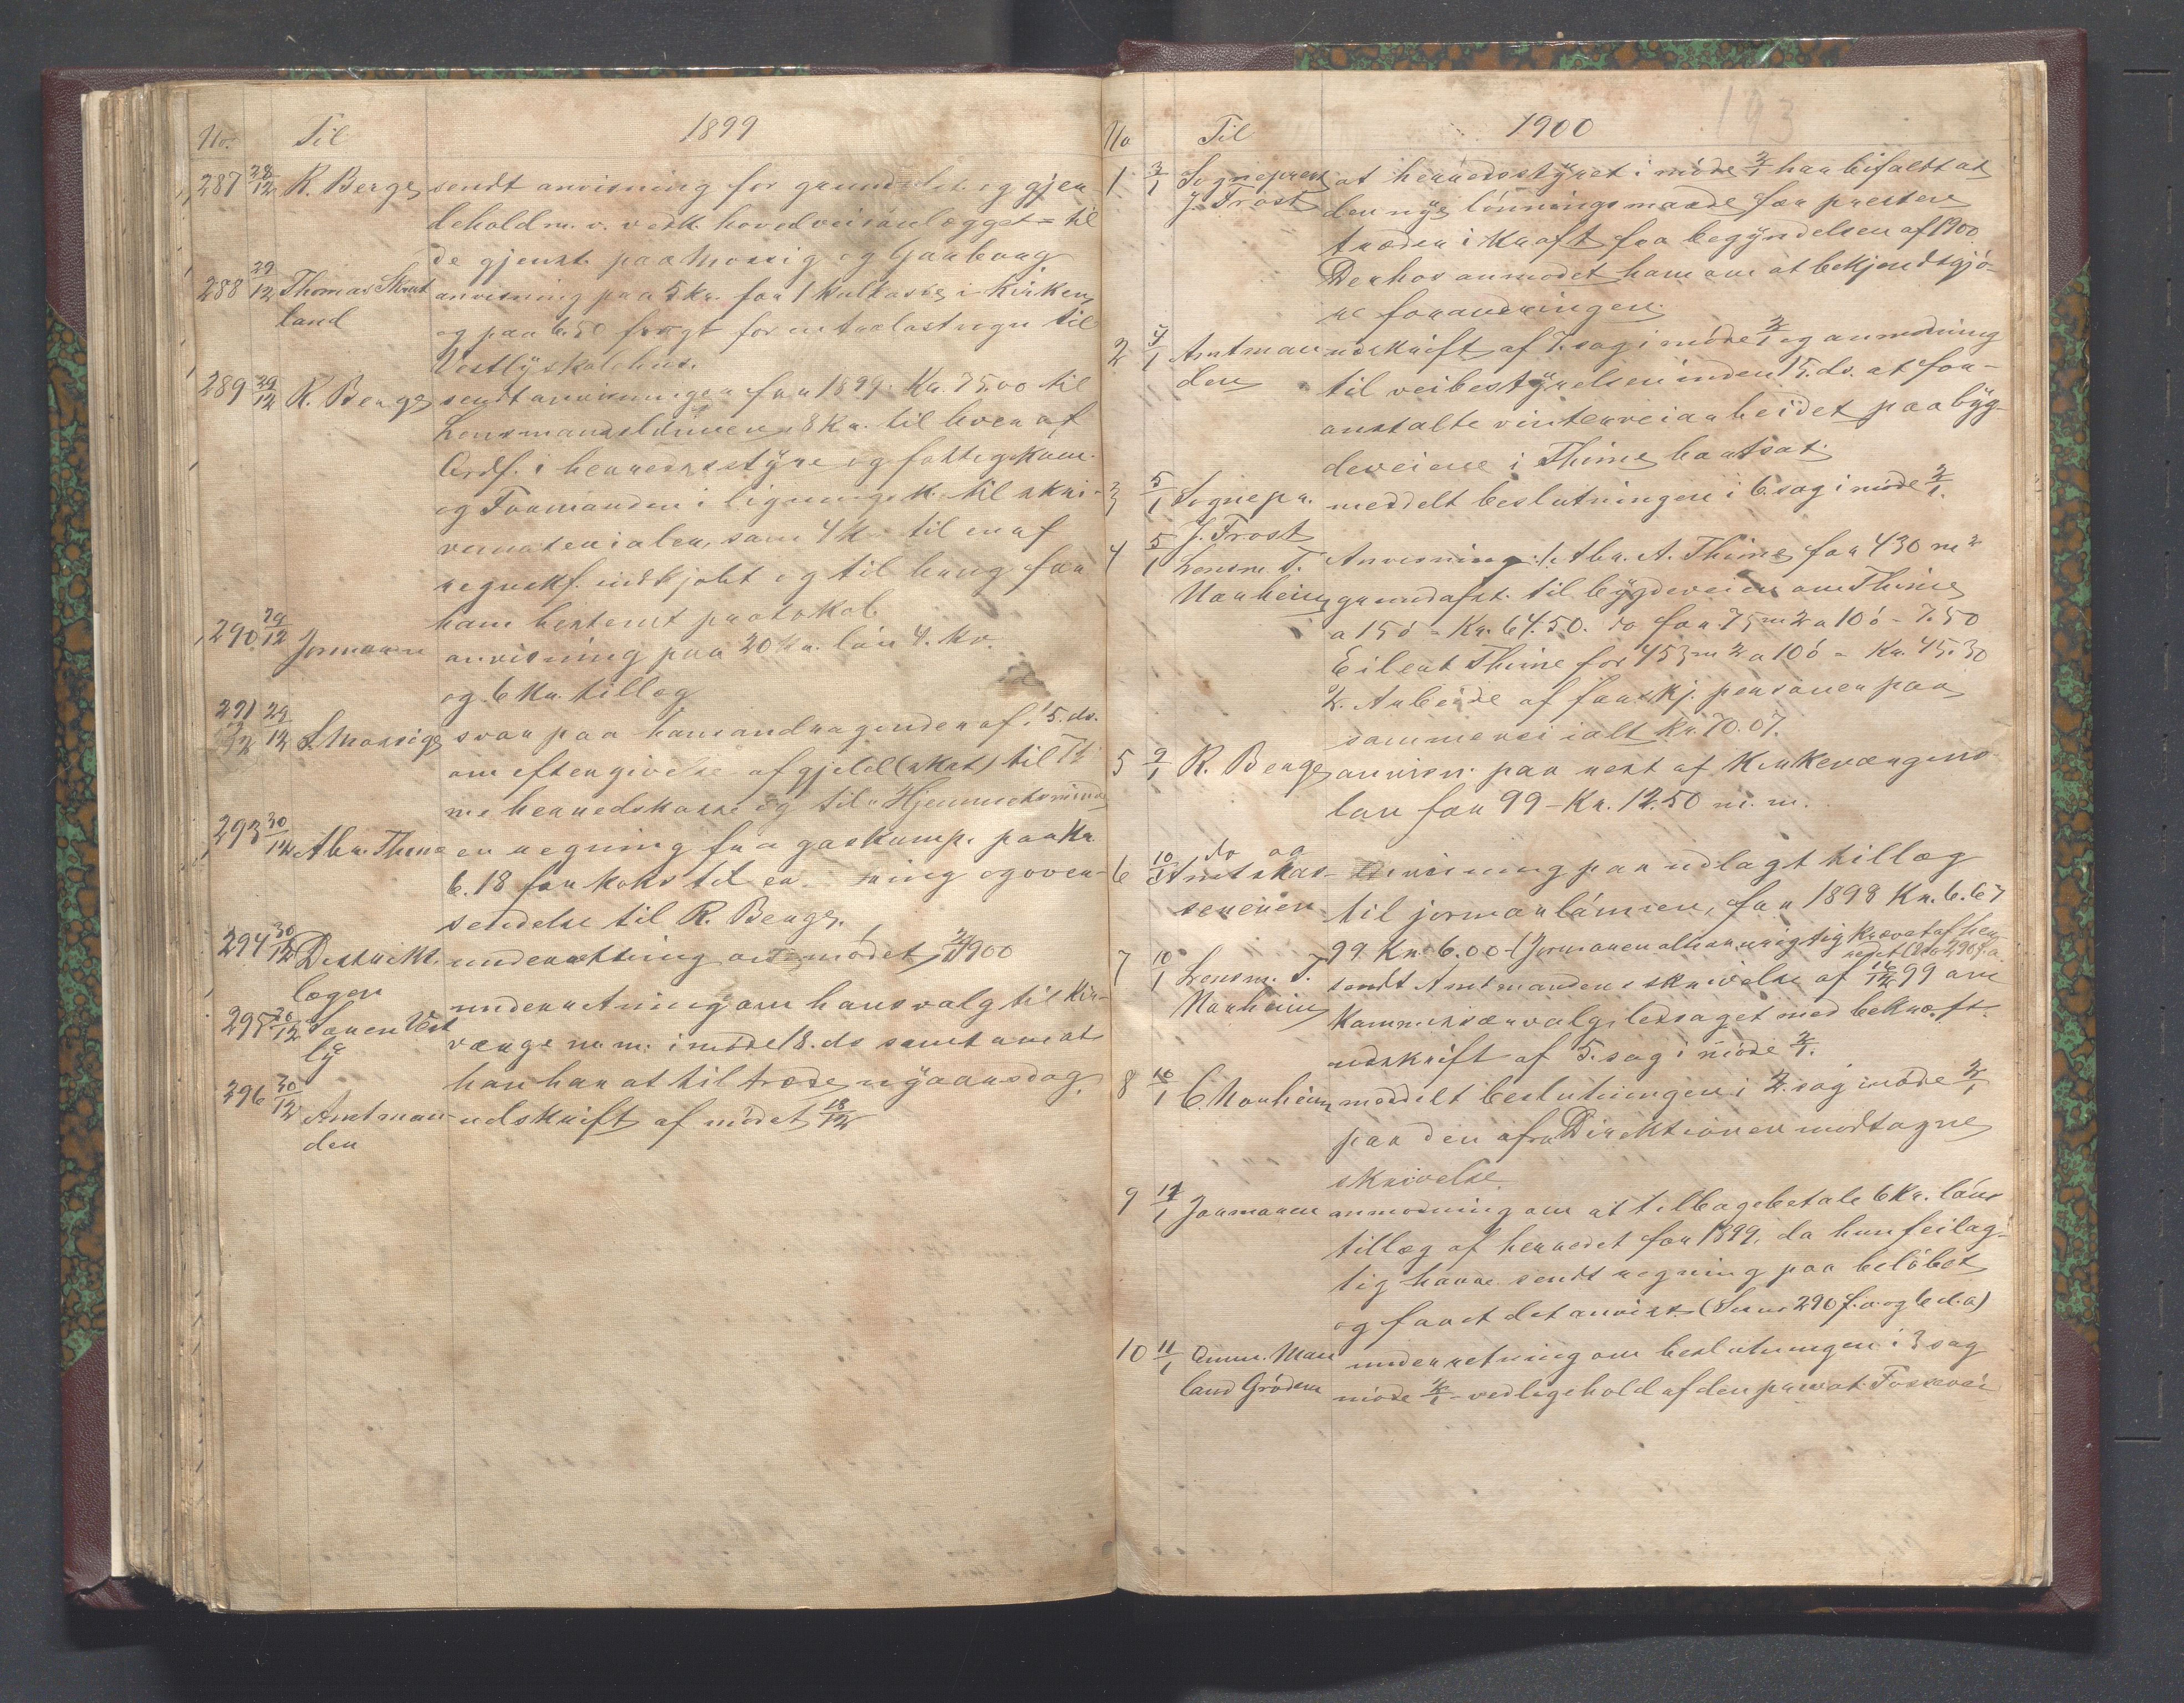 No. Til 1899
287 28/12 R. Berge sendt anvisning for grundafst. og gjer-
dehold m. v. vedk. hovedveianlægget - til
de gjenst. paa Mossig og Garborg
288 29/12 Thomas Skret anvisning paa 5 Kr. for 1 kulkasse i kirken
land og paa 6.50 fragt for en trælastvogn til
Vestly skolehus.
289 29/12 R. Berge sendt anvisninger for 1899. Kr. 75.00 til
Lensmandslønnen, 8 Kr. til hver af
Ordf. i herredsstyre og fattigkom.
og Formanden i ligningsk. til skri-
vematerialer, samt 4 Kr. til en af
regnskf. indkjøbt og til brug for
ham bestemt protokol.
290 29/12 Jormoren anvisning paa 20 Kr. løn 4. kv.
og 6 Kr. tillæg
291 29/12 S. Mossige svar paa hans andragender af 15. ds.
292 om eftergivelse af gjeld (skat) til Ti
me herredskasse og til "Hjemmets
293 30/12 Abr. Thime en regning fra gaskomp. paa Kr.
6.18 for koks til og over-
sendelse til R. Berge.
294 30/12 Distrikt. underretning om mødet 2/1 1900
lægen
295 30/12 Søren Vest underretning om hans valg til Kir-
ly værge m. m. i møde 18. ds samt om at
han har at tiltræde nyaarsdag.
296 30/12 Amtman- udskrift af mødet 18/12
den
193
No Til 1900
1 3/1 Sogneprest at herredsstyret i møde 2/1 har bifaldt at
J. Trost den nye lønningsmaade for prester
træder i kraft fra begyndelsen af 1900
Derhos anmodet ham om at bekjendtgjø-
re forandringen.
2 4/1 Amtman udskrift af 7. sag i møde 2/1 og anmodning
den til veibestyrelsen inden 15. ds. at for-
anstalte vinterveiarbeidet paa byg-
deveiene i Thime bortsat.
3 5/1 Sognepr. meddelt beslutningen i 6. sag i møde 2/1.
J. Trost
4 5/1 Lensm. T. Anvisning: 1. Abr. A. Thime for 430 m2
Norheim grundafst. til bygdeveien om Thime
a 15 ø = Kr. 64.50. do for 75 m2 a 10 ø - 7.50
Eilert Thime for 453 m2 a 10 ø = Kr. 45.30
2. Arbeide af forskj. personer paa
samme vei ialt Kr. 70.07.
5 9/1 R. Berge anvisn. paa rest af Kirkeværgens
løn for 99 - Kr. 12.50 m. m.
6 10/1 do og
Amtskas- Anvisning paa udlagt tillæg
sereren til jormorlønnen, for 1898 Kr. 6.67
99 Kr. 6.00 - (Jormoren alene urigtig krævet af her-
redet (Se nr 290 f. a.
7 10/1 Lensm. T. sendt Amtmandens skrivelse af 16/12 99 om
Norheim Kommissærvalg, ledsaget med bekræft.
udskrift af 5. sag i møde 2/1.
8 10/1 C. Norheim meddelt beslutningen i 2. sag i møde 2/1
paa den afra Direktionen modtagne
skrivelse.
9 11/1 Jormoren anmodning om at tilbagebetale 6 Kr. løns
tillæg af herredet for 1899, da hun feilag-
tig havde sendt regning paa beløbet
og faaet det anvist. (Se nr 290 f. a. og 6 d. a)
10 11/1 Omm. Mau underretning om beslutningen i 3 sag
land Grødem møde 2/1 - vedligehold af den privat. Fossevei